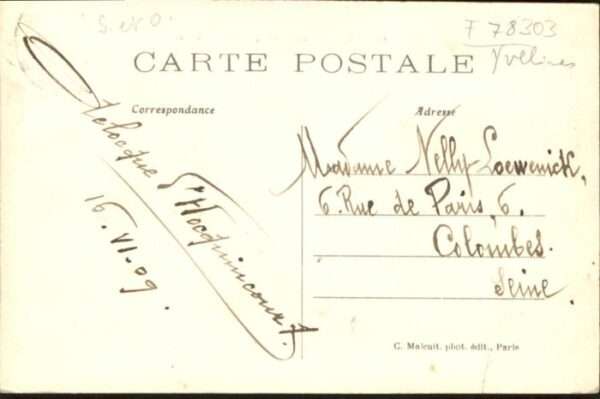 S. et O.
F 78303
Yvelines
CARTE POSTALE
Correspondance
Adresse
d'Hocquincourt.
16. VI. 09.
Madame Nelly Loewenick,
6. Rue de Paris, 6.
Colombes.
Seine.
C. Malcuit, phot. édit., Paris